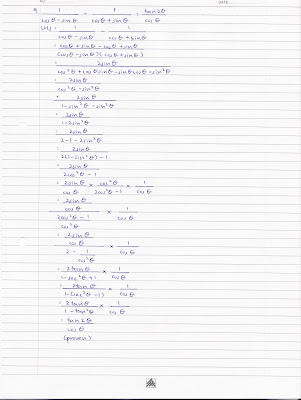 9. 1/(cosθ-sinθ) - 1/(cosθ+sinθ) = tan2θ/cosθ
LHS = 1/(cosθ-sinθ) - 1/(cosθ+sinθ)
= (cosθ+sinθ-cosθ+sinθ)/((cosθ-sinθ)(cosθ+sinθ))
= 2sinθ/(cos²θ+cosθsinθ-sinθcosθ-sin²θ)
= 2sinθ/(cos²θ-sin²θ)
= 2sinθ/(1-sin²θ-sin²θ)
= 2sinθ/(1-2sin²θ)
= 2sinθ/(2-1-2sin²θ)
= 2sinθ/(2(1-sin²θ)-1)
= 2sinθ/(2cos²θ-1)
= 2sinθ/cosθ × cos²θ/(2cos²θ-1) × 1/cosθ
= (2sinθ/cosθ)/((2cos²θ-1)/cos²θ) × 1/cosθ
= (2sinθ/cosθ)/(2-1/cos²θ) × 1/cosθ
= 2tanθ/(1-sec²θ+1) × 1/cosθ
= 2tanθ/(1-(sec²θ-1)) × 1/cosθ
= 2tanθ/(1-tan²θ) × 1/cosθ
= tan2θ/cosθ
(proven)